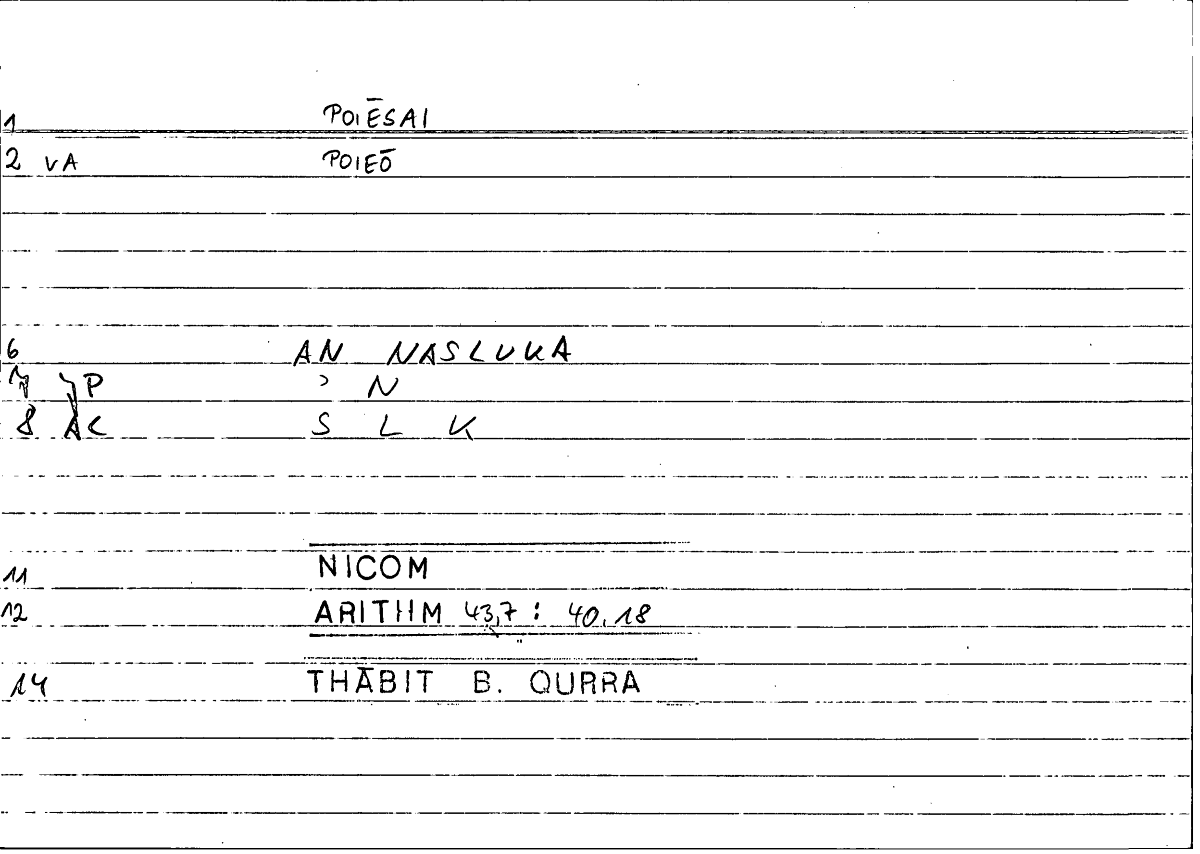 1 POIĒSAI
2 VA POIEŌ
6 AN NASLUKA
7 P ʾ N
8 AC S L K
11 NICOM
12 ARITHM 43,7 : 40.18
14 THĀBIT B. QURRA